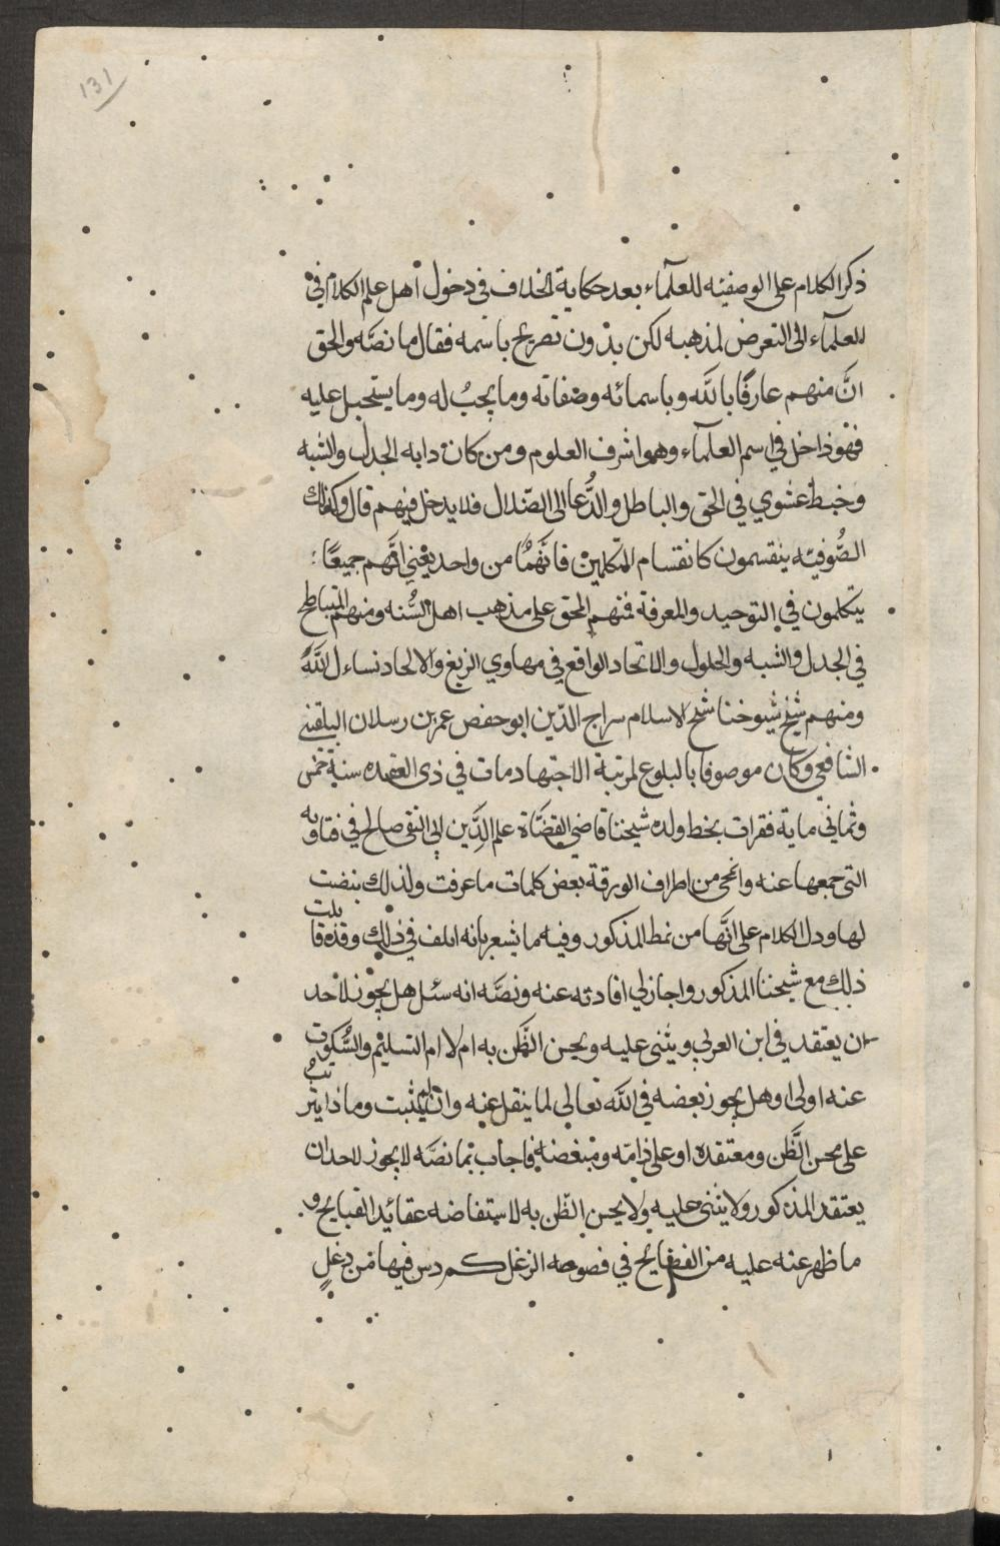 131
ذكر الكلام على الوصفيه للعلمآء بعد حكاية الخلاف في دخول اهل علم الكلام في
للعلمآء الى التعرض لمذهبه لكن بدون تصريح باسمه فقال ما نصَّه والحق
انَّ منهم عارفًا بالله وباسمائه وصفاته وما يجبُ له وما يستحيل عليه
فهو داخل في اسم العلمآء وهو اشرف العلوم ومن كان دابه الجدل والشبه
وخبط عشوي في الحق والباطل والدُّعا الى الضّلال فلا يدخل فيهم قال وكذلك
الصُّوفيّه ينقسمون كانقسام المتكلمين فانَّهما من واحد يعني انّهم جميعًا :
يتكلمون في التوحيد والمعرفة فمنهم المحق على مذهب اهل السُّنه ومنهم
في الجدل والشبه والحلول والاتحاد الواقع في مهاوي الزيغ والالحاد نساءل اللهَ
ومنهم شيخ شيوخنا شيخ الاسلام سراج الدّين ابو حفص عمر بن رسلان البلقيني
الشافعي وكان موصوفا بالبلوغ لمرتبة الاجتهاد مات في ذي القعده سنة خمس
وثماني ماية فقرات بخط ولده شيخنا قاضي القضَاة علم الدِّين ابي التقى صالح في فتاويه
التي جمعها عنه وانمحى من اطراف الورقة بعض كلمات ما عرفت ولذلك بيضت
لها ودل الكلام على انَّها من نمط المذكور وفيه مما يشعر بانه الف في ذلك وقد قابلت
ذلك مع شيخنا المذكور واجاز لي افادته عنه ونصَّه انه سئل هل يجوز لاحد
ان يعتقد في ابن العربي ويثني عليه ويحسن الظَّن به ام لا ام التسليم والسُّكوت
عنه اولى او هل يجوز بعضه في الله تعالى لما ينقل عنه وان لم يثبت وماذا يترتبُ
على محسن الظَّن ومعتقده او على ذامّه ومبغضه فاجاب بما نصَّه لا يجوز لاحد ان
يعتقد المذكور ولا يثني عليه ولا يحسن الظّن به لاستفاضه عقائد القبايح و
ما ظهر عنه عليه من الفضايح في فصوصه الزغل كم دس فيها من دغلٍ